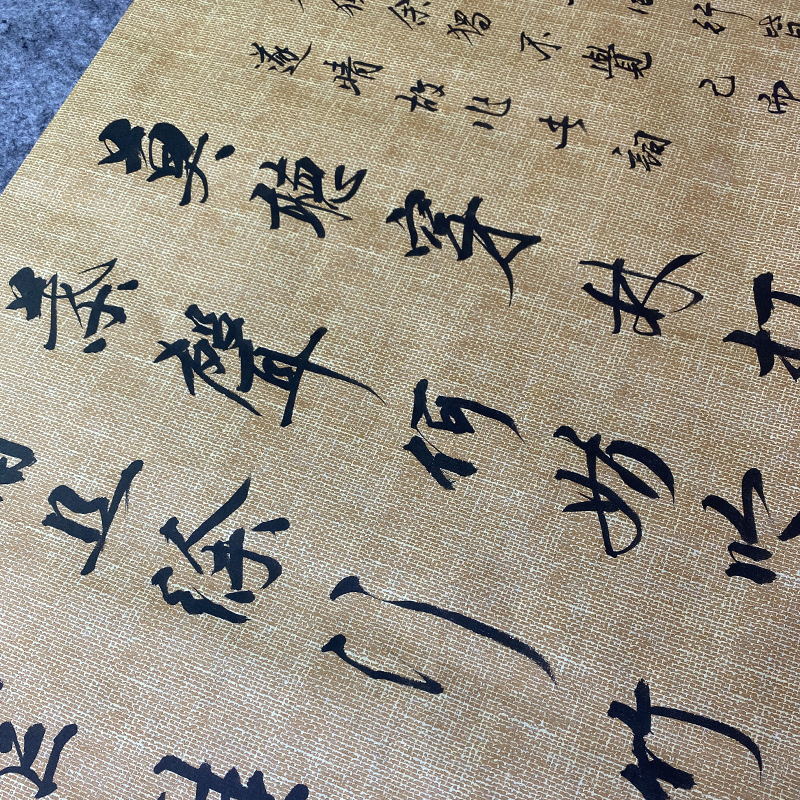 行皆
余獨不覺已而
遂晴故作此詞
莫聽穿林打
葉聲何妨吟
且徐行竹